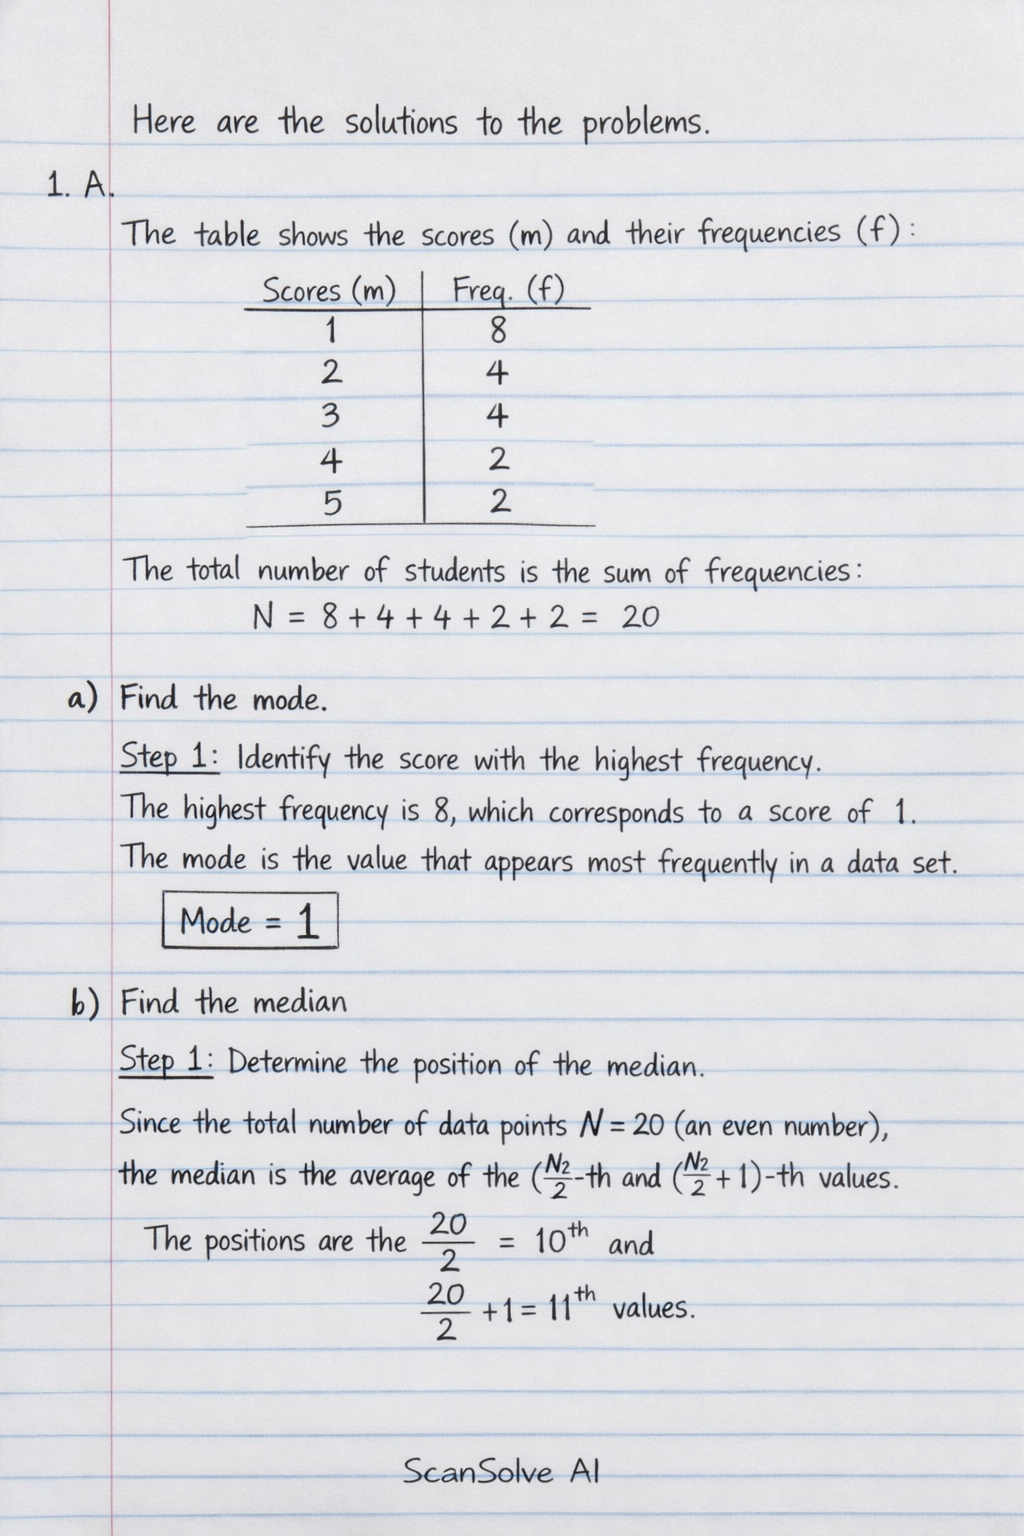 Here are the solutions to the problems.
1. A.
The table shows the scores (m) and their frequencies (f):
Scores (m) | Freq. (f)
1 | 8
2 | 4
3 | 4
4 | 2
5 | 2
The total number of students is the sum of frequencies:
N = 8 + 4 + 4 + 2 + 2 = 20
a) Find the mode.
Step 1: Identify the score with the highest frequency.
The highest frequency is 8, which corresponds to a score of 1.
The mode is the value that appears most frequently in a data set.
Mode = 1
b) Find the median
Step 1: Determine the position of the median.
Since the total number of data points N = 20 (an even number),
the median is the average of the (N2/2-th and (N2/2 + 1)-th values.
The positions are the 20/2 = 10th and
20/2 + 1 = 11th values.
ScanSolve AI